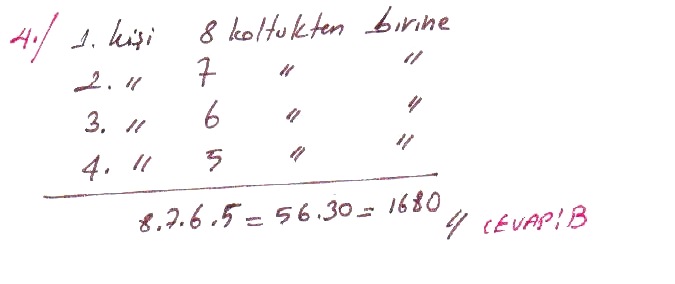 4./ 1. kişi 8 koltukten birine
2. " 7 " "
3. " 6 " "
4. " 5 " "
8.7.6.5 = 56.30 = 1680 // CEVAP: B